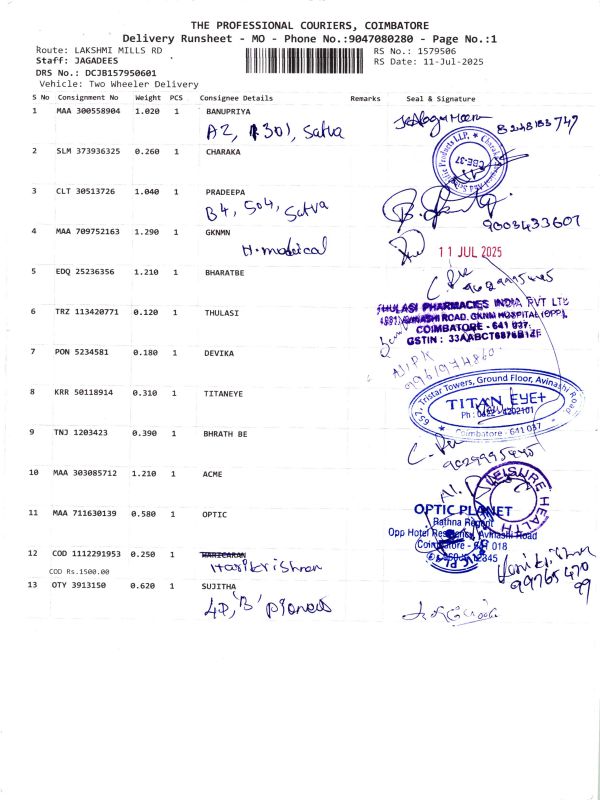 THE PROFESSIONAL COURIERS, COIMBATORE
Delivery Runsheet - MO - Phone No.:9047080280 - Page No.:1
Route: LAKSHMI MILLS RD
RS No.: 1579506
Staff: JAGADEES
RS Date: 11-Jul-2025
DRS No.: DCJB157950601
Vehicle: Two Wheeler Delivery
S No Consignment No Weight PCS Consignee Details Remarks Seal & Signature
1 MAA 300558904 1.020 1 BANUPRIYA
A2, 1301, Satva
2 SLM 373936325 0.260 1 CHARAKA
CBE-37
3 CLT 30513726 1.040 1 PRADEEPA
B4, 504, Satva
9003433607
4 MAA 709752163 1.290 1 GKNMN
H-medical
11 JUL 2025
5 EDQ 25236356 1.210 1 BHARATBE
6 TRZ 113420771 0.120 1 THULASI
THULASI PHARMACIES INDIA PVT LTD
COIMBATORE - 641 037.
7 PON 5234581 0.180 1 DEVIKA
8 KRR 50118914 0.310 1 TITANEYE
657, Tristar Towers, Ground Floor, Avinashi Road
TITAN EYE+
Coimbatore - 641 037
9 TNJ 1203423 0.390 1 BHRATH BE
10 MAA 303085712 1.210 1 ACME
LEISURE HEALTH
11 MAA 711630139 0.580 1 OPTIC
OPTIC PLANET
Rathna Regent
Opp Hotel Residency, Avinashi Road
Coimbatore - 641 018
12 COD 1112291953 0.250 1 HARICARAN
COD Rs.1500.00
Harikrishnan
Harikrishnan
99765470
99
13 OTY 3913150 0.620 1 SUJITHA
4D, 'B'